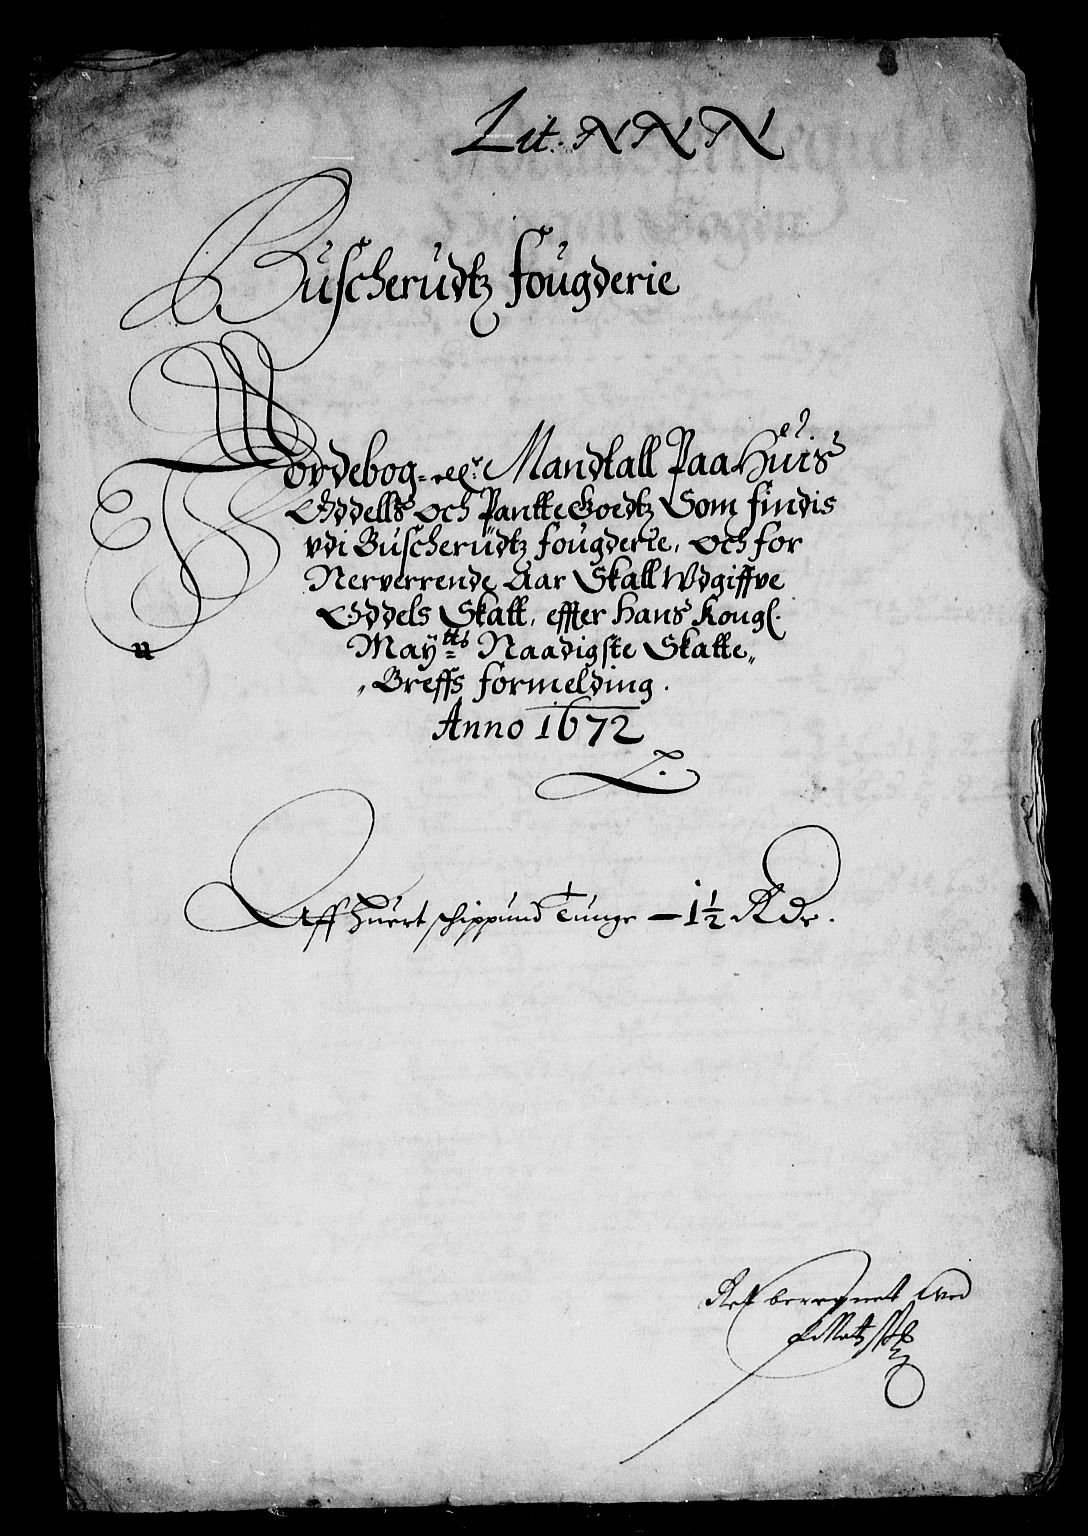 Lit. NNN
Buscherudtz fougderie
Jordebog eller Mandtall Paa Huis
Oddells och Pantte Goedtz Som findis
vdi Buscherüdtz fougderie, och for
Nerverrende Aar Skall Wdgiffve
Oddels Skatt, effter Hans Kongl.
Maÿtts Naadigste Skatte
Breffs formelding.
Anno 1672
Aff huert schippund Tunge — 1½ Rdr.
Ret beregnet